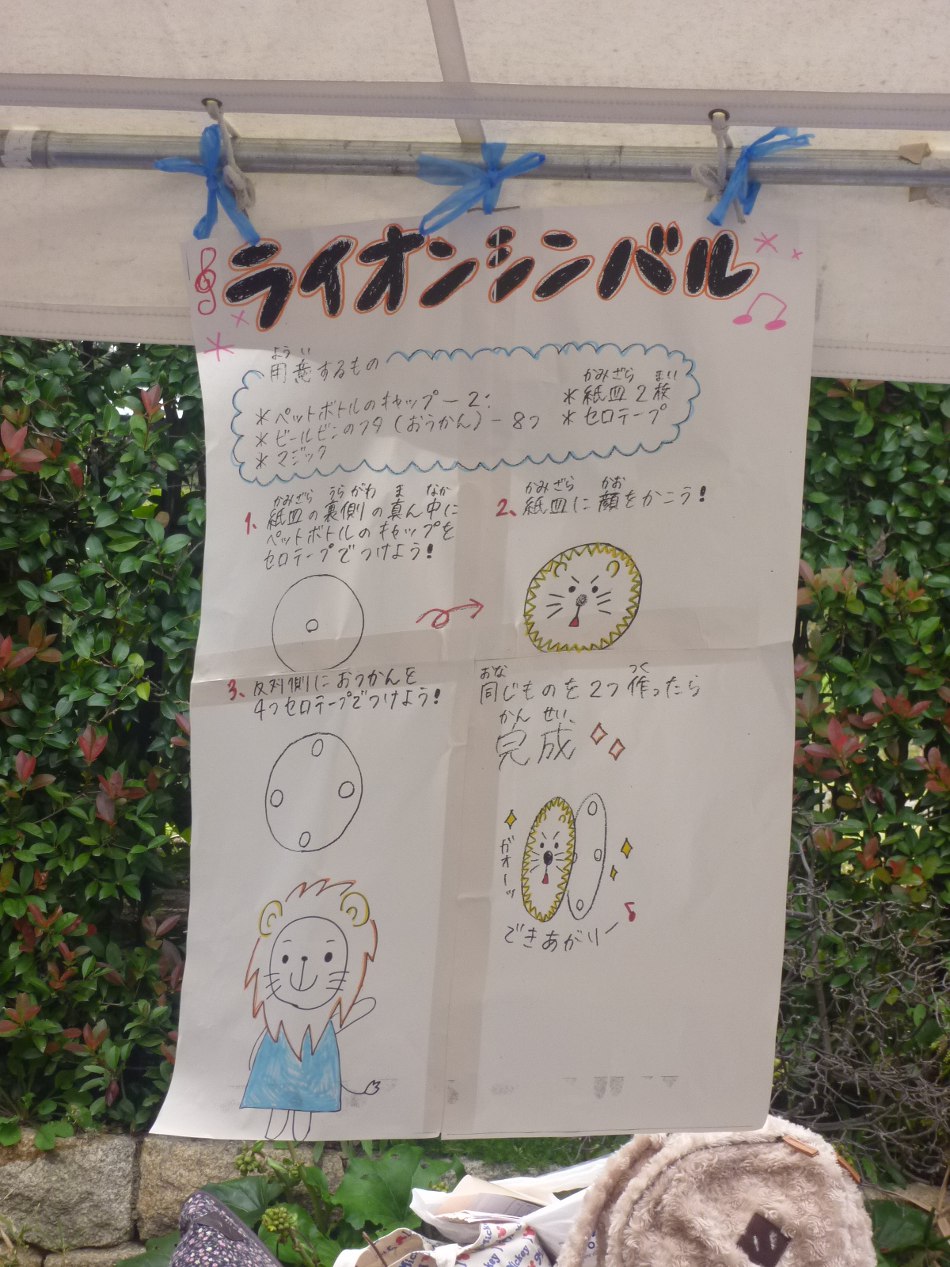 ライオンシンバル
ようい
用意するもの
＊ペットボトルのキャップー2:
＊ビールビンのフタ(おうかん)ー8つ
＊マジック
かみざら まい
＊紙皿2枚
＊セロテープ
かみざら うらがわ ま なか
1、紙皿の裏側の真ん中に
ペットボトルのキャップを
セロテープでつけよう!
かみざら かお
2、紙皿に顔をかこう!
3、反対側におうかんを
4つセロテープでつけよう!
おな つく
同じものを2つ作ったら
かん せい
完成
ガオーッ
できあがりー